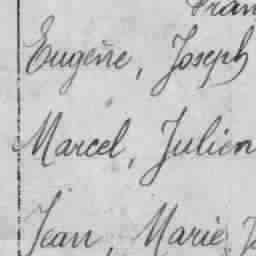 Eugène, Joseph
Marcel, Julien
Jean, Marie